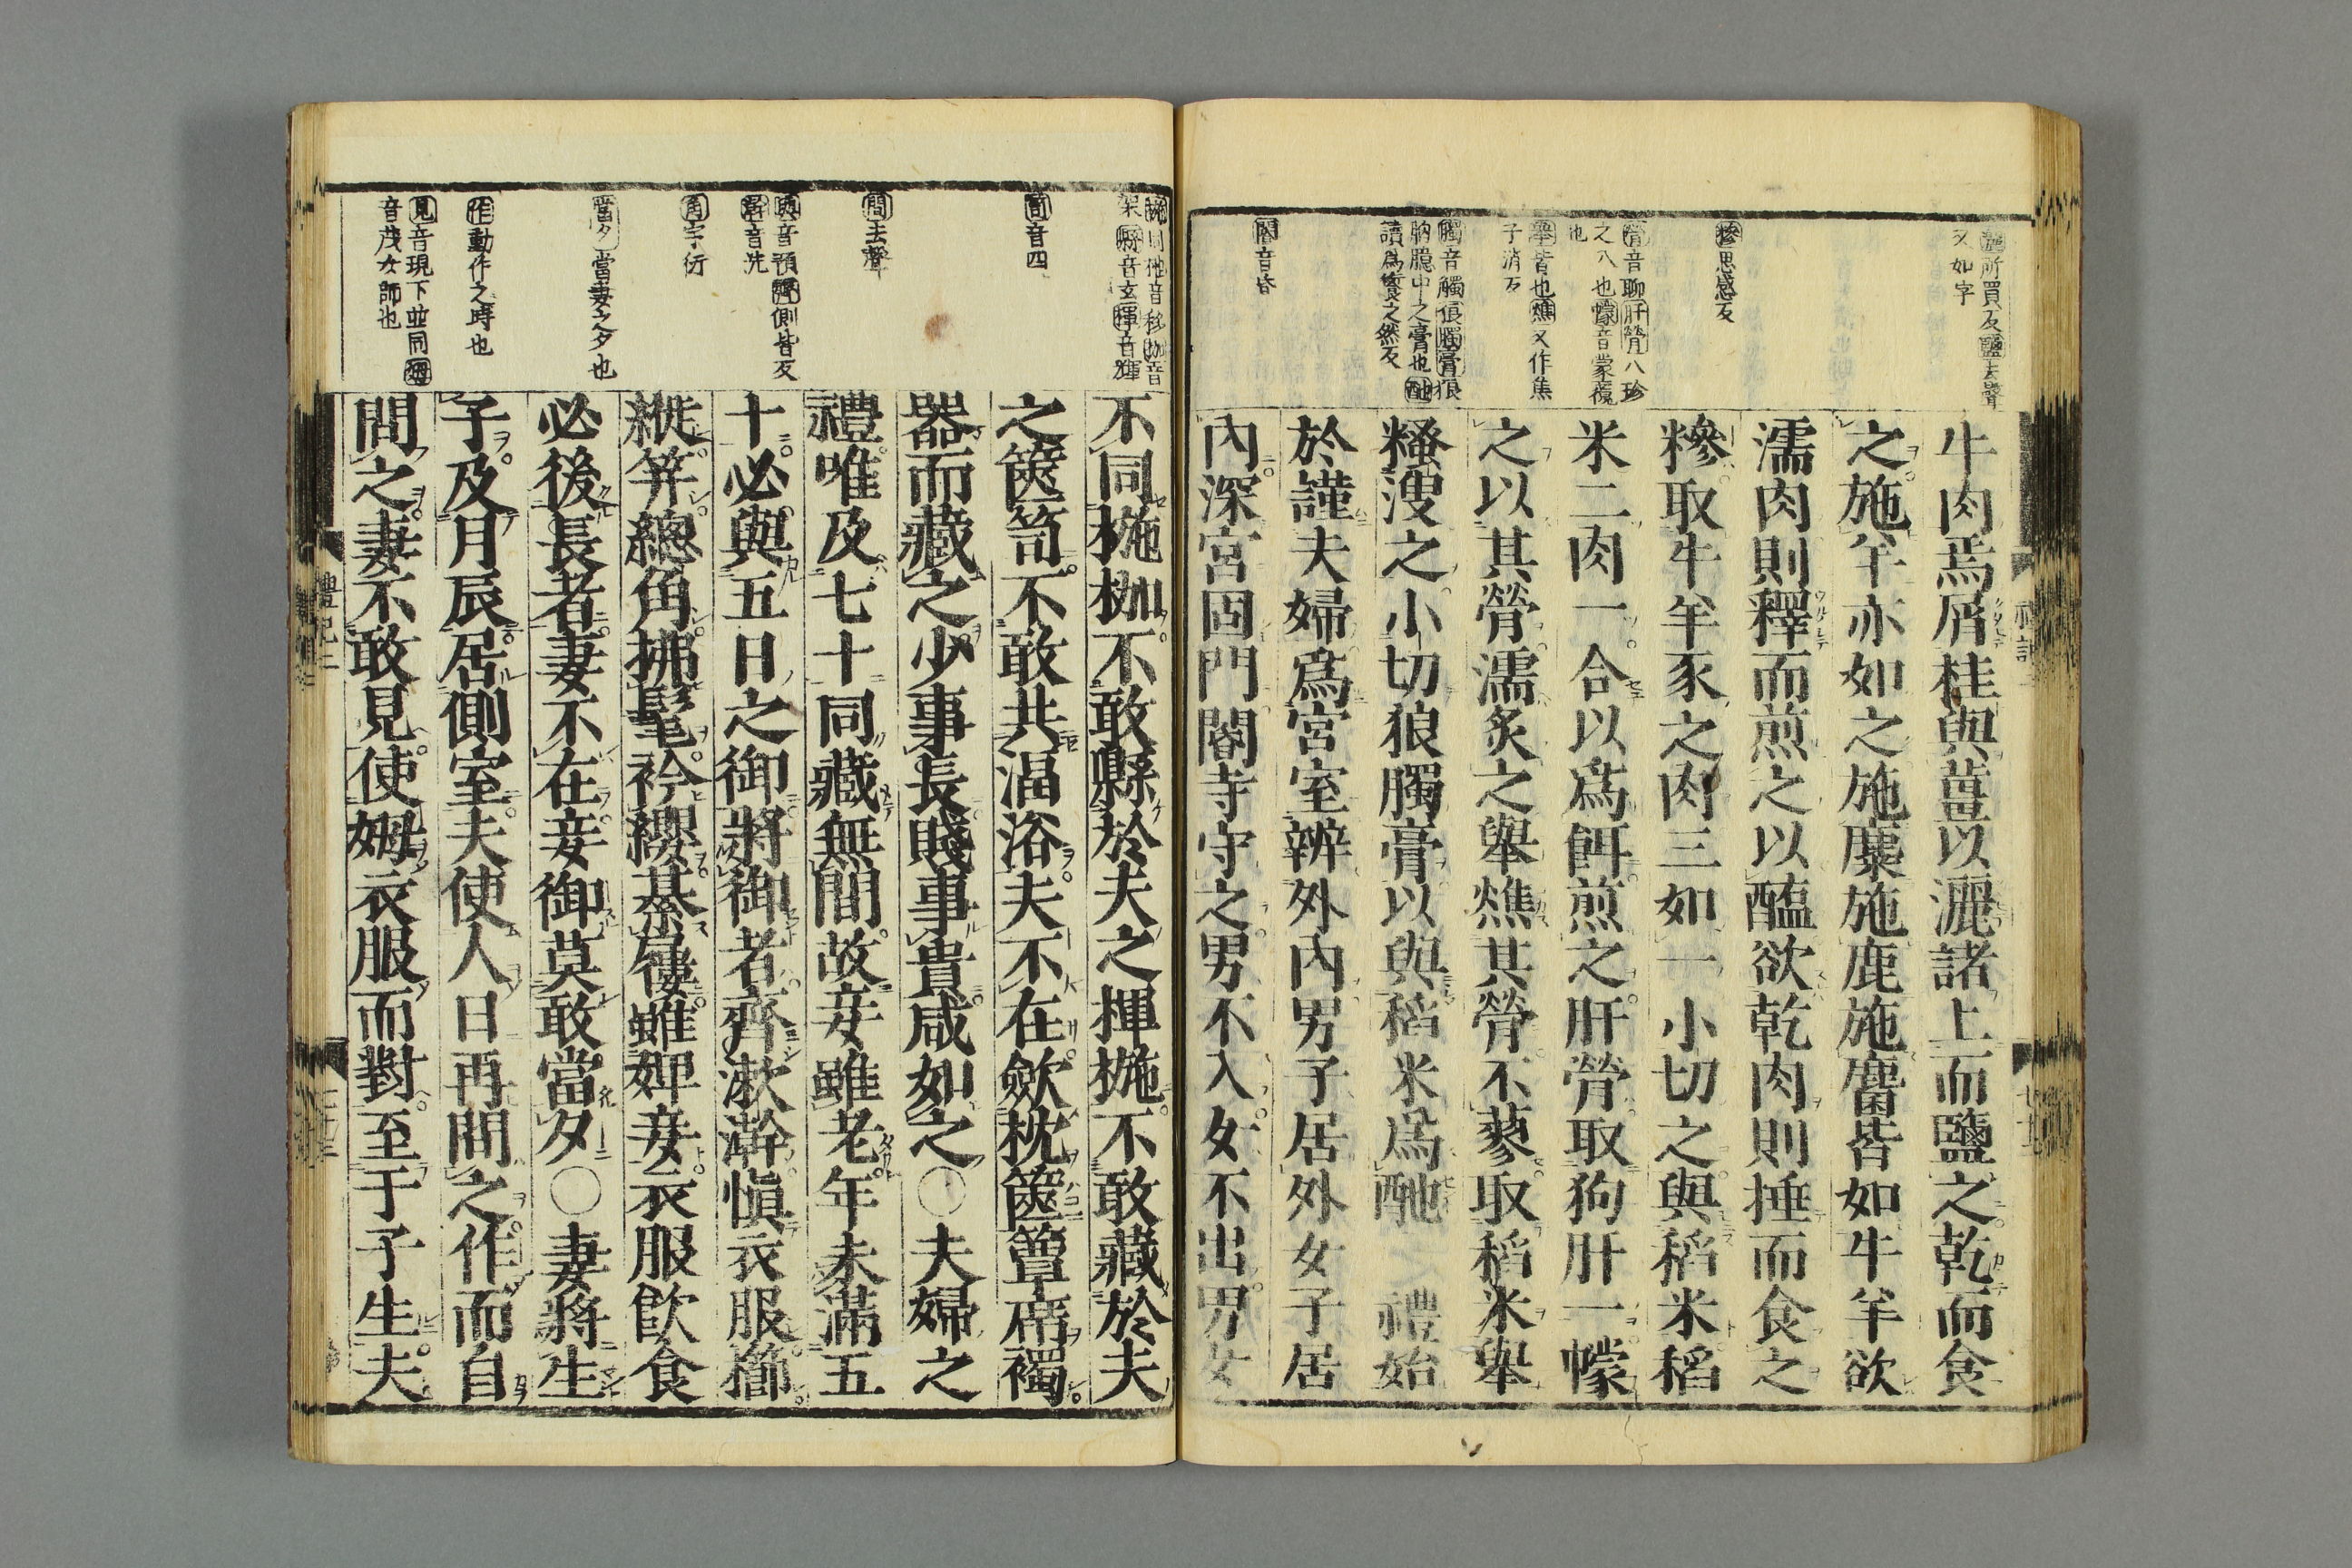 灑所買反鹽去聲
又如字
糝思感反
膋音聊肝膋八珍
之八也幪音蒙覆
也
舉皆也燋又作焦
子消反
臅音觸狼臅膏狼
胸臆中之膏也酏
讀為餰之然反
閽音昏
牛肉焉屑桂與薑以灑諸上而鹽之乾而食
之施羊亦如之施麋施鹿施麕皆如牛羊欲
濡肉則釋而煎之以醢欲乾肉則捶而食之
糝取牛羊豕之肉三如一小切之與稻米稻
米二肉一合以爲餌煎之肝膋取狗肝一幪
之以其膋濡炙之舉燋其膋不蓼取稻米舉
糔溲之小切狼臅膏以與稻米爲酏 禮始
於謹夫婦爲宮室辨外內男子居外女子居
內深宮固門閽寺守之男不入女不出男女
架縣音玄揮音輝
笥音四
間去聲
與音預齊側皆反
音洗
角字衍
當夕當妻之夕也
作動作之時也
見音現下並同姆
音茂女師也
不同椸枷不敢縣於夫之揮椸不敢藏於夫
之篋笥不敢共湢浴夫不在斂枕篋簟席襡
器而藏之少事長賤事貴咸如之○夫婦之
禮唯及七十同藏無間故妾雖老年未滿五
十必與五日之御將御者齊漱澣愼衣服櫛
縰筓總角拂髦衿纓綦屨雖婢妾衣服飮食
必後長者妻不在妾御莫敢當夕○妻將生
子及月辰居側室夫使人日再問之作而自
問之妻不敢見使姆衣服而對至于子生夫
禮記二